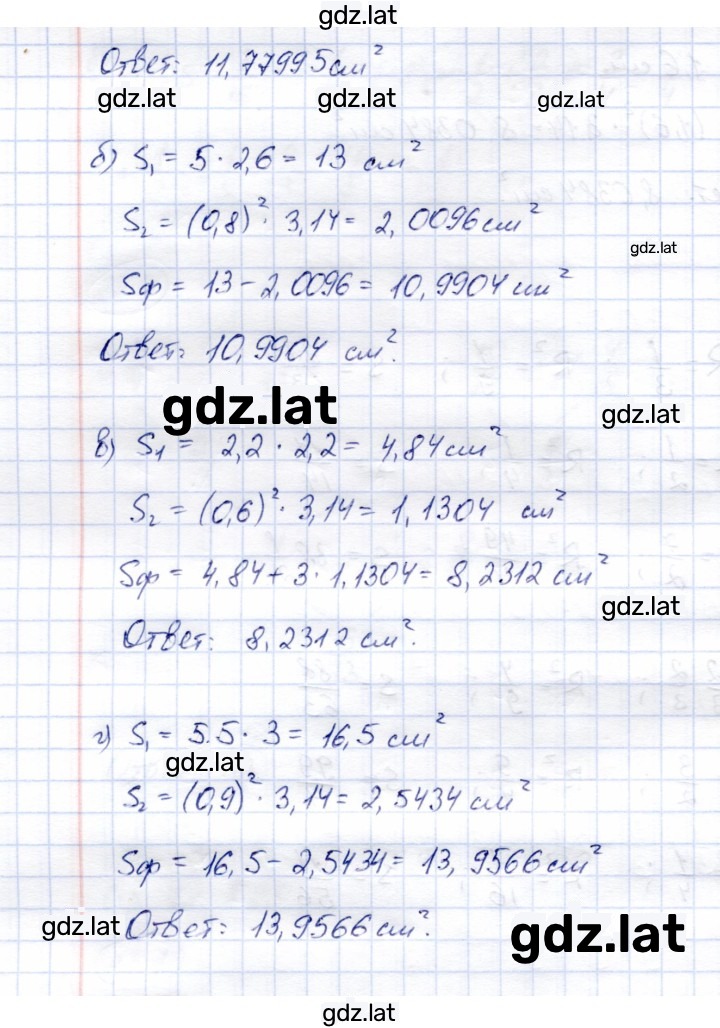 gdz.lat
Ответ: 11,77995 см²
gdz.lat gdz.lat gdz.lat
б) S₁ = 5 · 2,6 = 13 см²
S₂ = (0,8)² · 3,14 = 2,0096 см²
gdz.lat
Sф = 13 - 2,0096 = 10,9904 см²
Ответ: 10,9904 см².
gdz.lat gdz.lat
в) S₁ = 2,2 · 2,2 = 4,84 см²
S₂ = (0,6)² · 3,14 = 1,1304 см²
Sф = 4,84 + 3 · 1,1304 = 8,2312 см²
gdz.lat
Ответ: 8,2312 см².
г) S₁ = 5.5 · 3 = 16,5 см²
gdz.lat
S₂ = (0,9)² · 3,14 = 2,5434 см²
Sф = 16,5 - 2,5434 = 13,9566 см²
gdz.lat Ответ: 13,9566 см². gdz.lat
gdz.lat